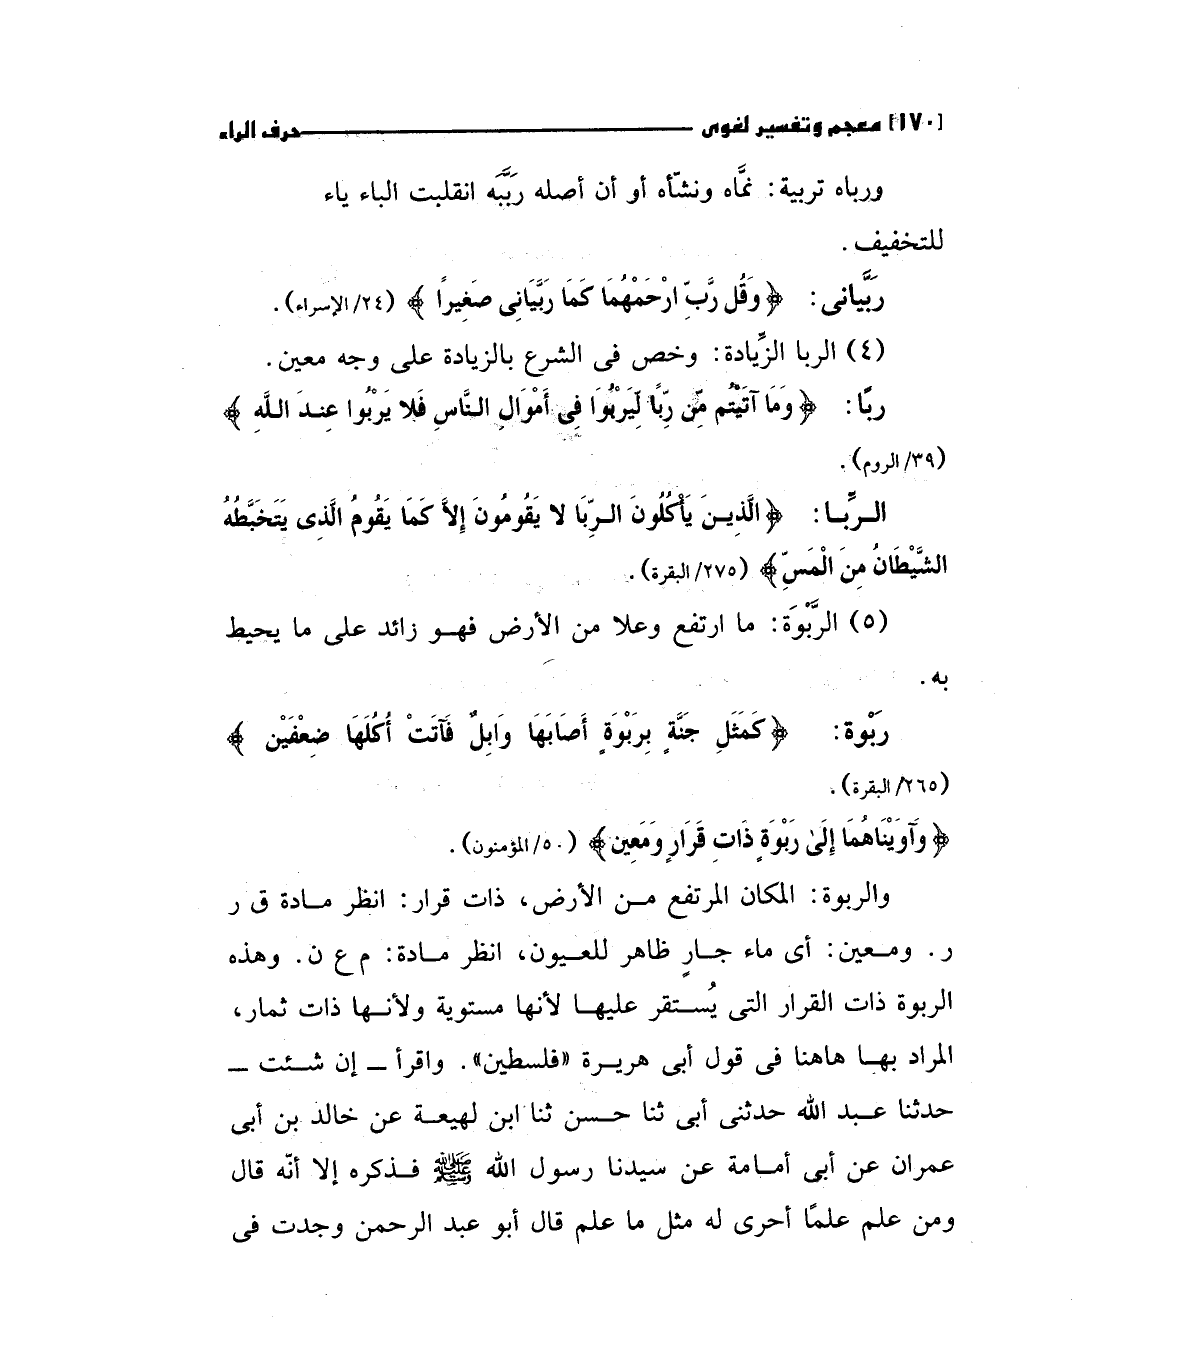 [١٧٠] معجم وتفسير لغوى ــــــ حرف الراء
ورباه تربية: نمَّاه ونشّأه أو أن أصله رَبَّبَه انقلبت الباء ياء
للتخفيف.
رَبَّيانى: ﴿وَقُل رَّبِّ ارْحَمْهُمَا كَمَا رَبَّيَانِى صَغِيرًا﴾ (٢٤/ الإسراء).
(٤) الربا الزِّيادة: وخص فى الشرع بالزيادة على وجه معين.
ربًا: ﴿وَمَا آتَيْتُم مِّن رِّبًا لِّيَرْبُوَا فِى أَمْوَالِ النَّاسِ فَلا يَرْبُوا عِندَ اللَّهِ﴾
(٣٩/ الروم).
الرِّبا: ﴿الَّذِينَ يَأْكُلُونَ الرِّبَا لا يَقُومُونَ إِلاَّ كَمَا يَقُومُ الَّذِى يَتَخَبَّطُهُ
الشَّيْطَانُ مِنَ الْمَسِّ﴾ (٢٧٥/ البقرة).
(٥) الرَّبْوَة: ما ارتفع وعلا من الأرض فهو زائد على ما يحيط
به.
رَبْوة: ﴿كَمَثَلِ جَنَّةٍ بِرَبْوَةٍ أَصَابَهَا وَابِلٌ فَآتَتْ أُكُلَهَا ضِعْفَيْنِ﴾
(٢٦٥/ البقرة).
﴿وَآوَيْنَاهُمَا إِلَىٰ رَبْوَةٍ ذَاتِ قَرَارٍ وَمَعِينٍ﴾ (٥٠/ المؤمنون).
والربوة: المكان المرتفع من الأرض، ذات قرار: انظر مادة ق ر
ر. ومعين: أى ماء جارٍ ظاهر للعيون، انظر مادة: م ع ن. وهذه
الربوة ذات القرار التى يُستقر عليها لأنها مستوية ولأنها ذات ثمار،
المراد بها هاهنا فى قول أبى هريرة «فلسطين». واقرأ ــ إن شئت ــ
حدثنا عبد الله حدثنى أبى ثنا حسن ثنا ابن لهيعة عن خالد بن أبى
عمران عن أبى أمامة عن سيدنا رسول الله ﷺ فذكره إلا أنّه قال
ومن علم علمًا أحرى له مثل ما علم قال أبو عبد الرحمن وجدت فى